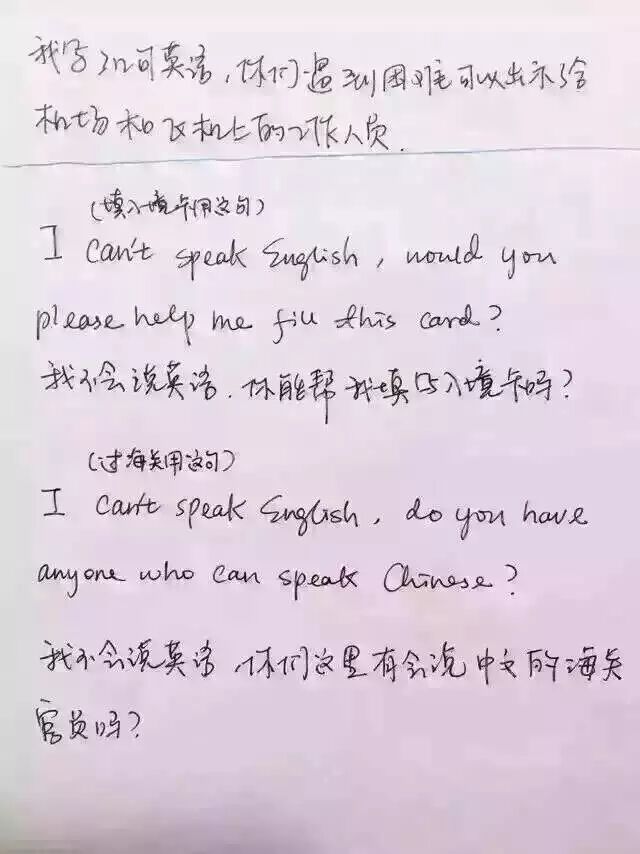 我写了几句英语，你们遇到困难可以出示给
机场和飞机上的工作人员.
（填入境卡用这句）
I can't speak English, would you
please help me fill this card?
我不会说英语，你能帮我填写入境卡吗？
（过海关用这句）
I can't speak English, do you have
anyone who can speak Chinese?
我不会说英语，你们这里有会说中文的海关
官员吗？